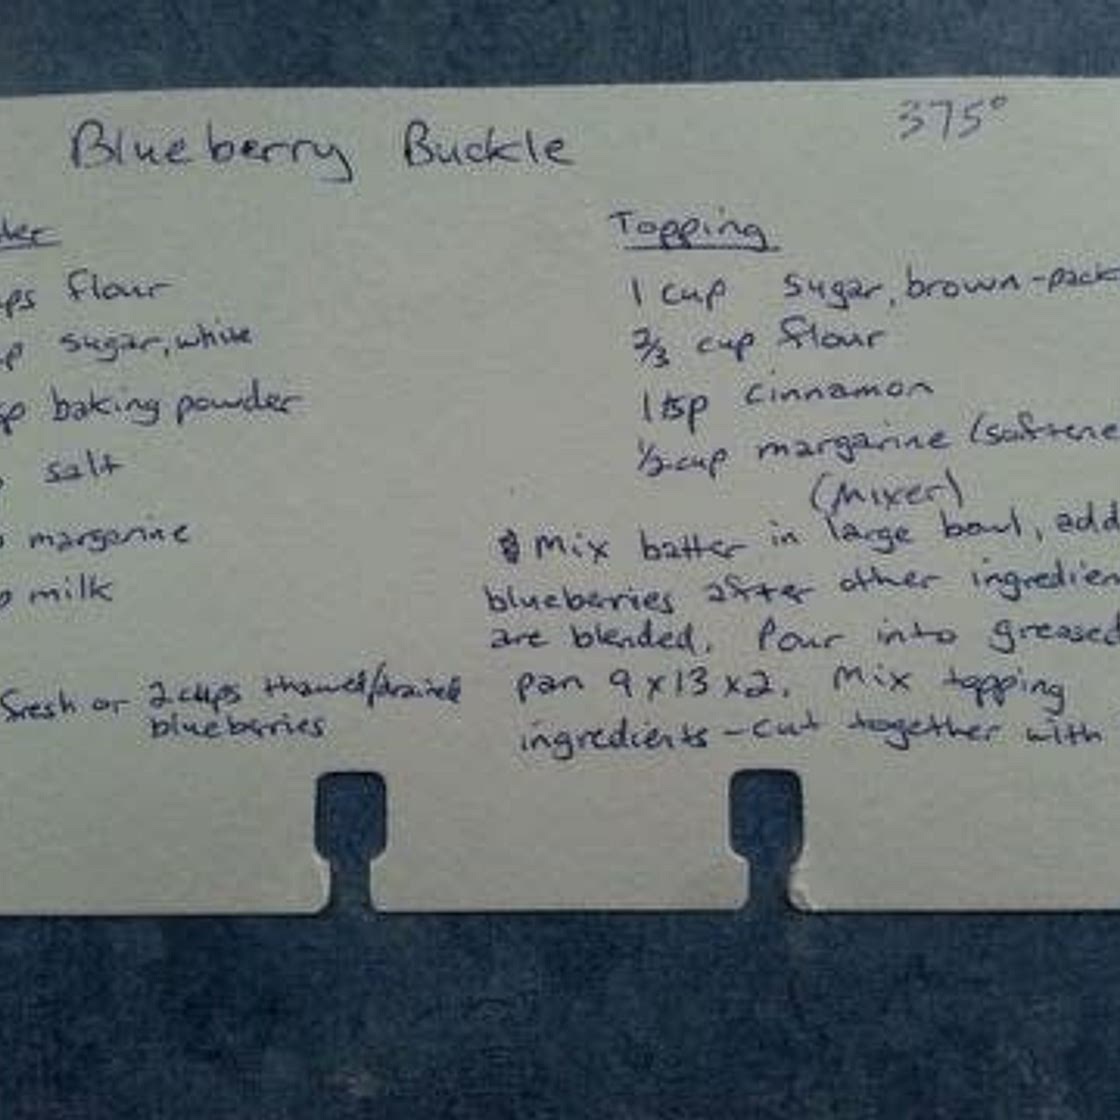 Blueberry Buckle
375°
flour
sugar, white
baking powder
salt
margarine
milk
fresh or 2 cups thawed/drained
blueberries
Topping
1 cup sugar, brown-pack
2/3 cup flour
1 tsp cinnamon
1/2 cup margarine (softene
(Mixer)
Mix batter in large bowl, add
blueberries after other ingredien
are blended. Pour into greased
pan 9x13x2. Mix topping
ingredients - cut together with